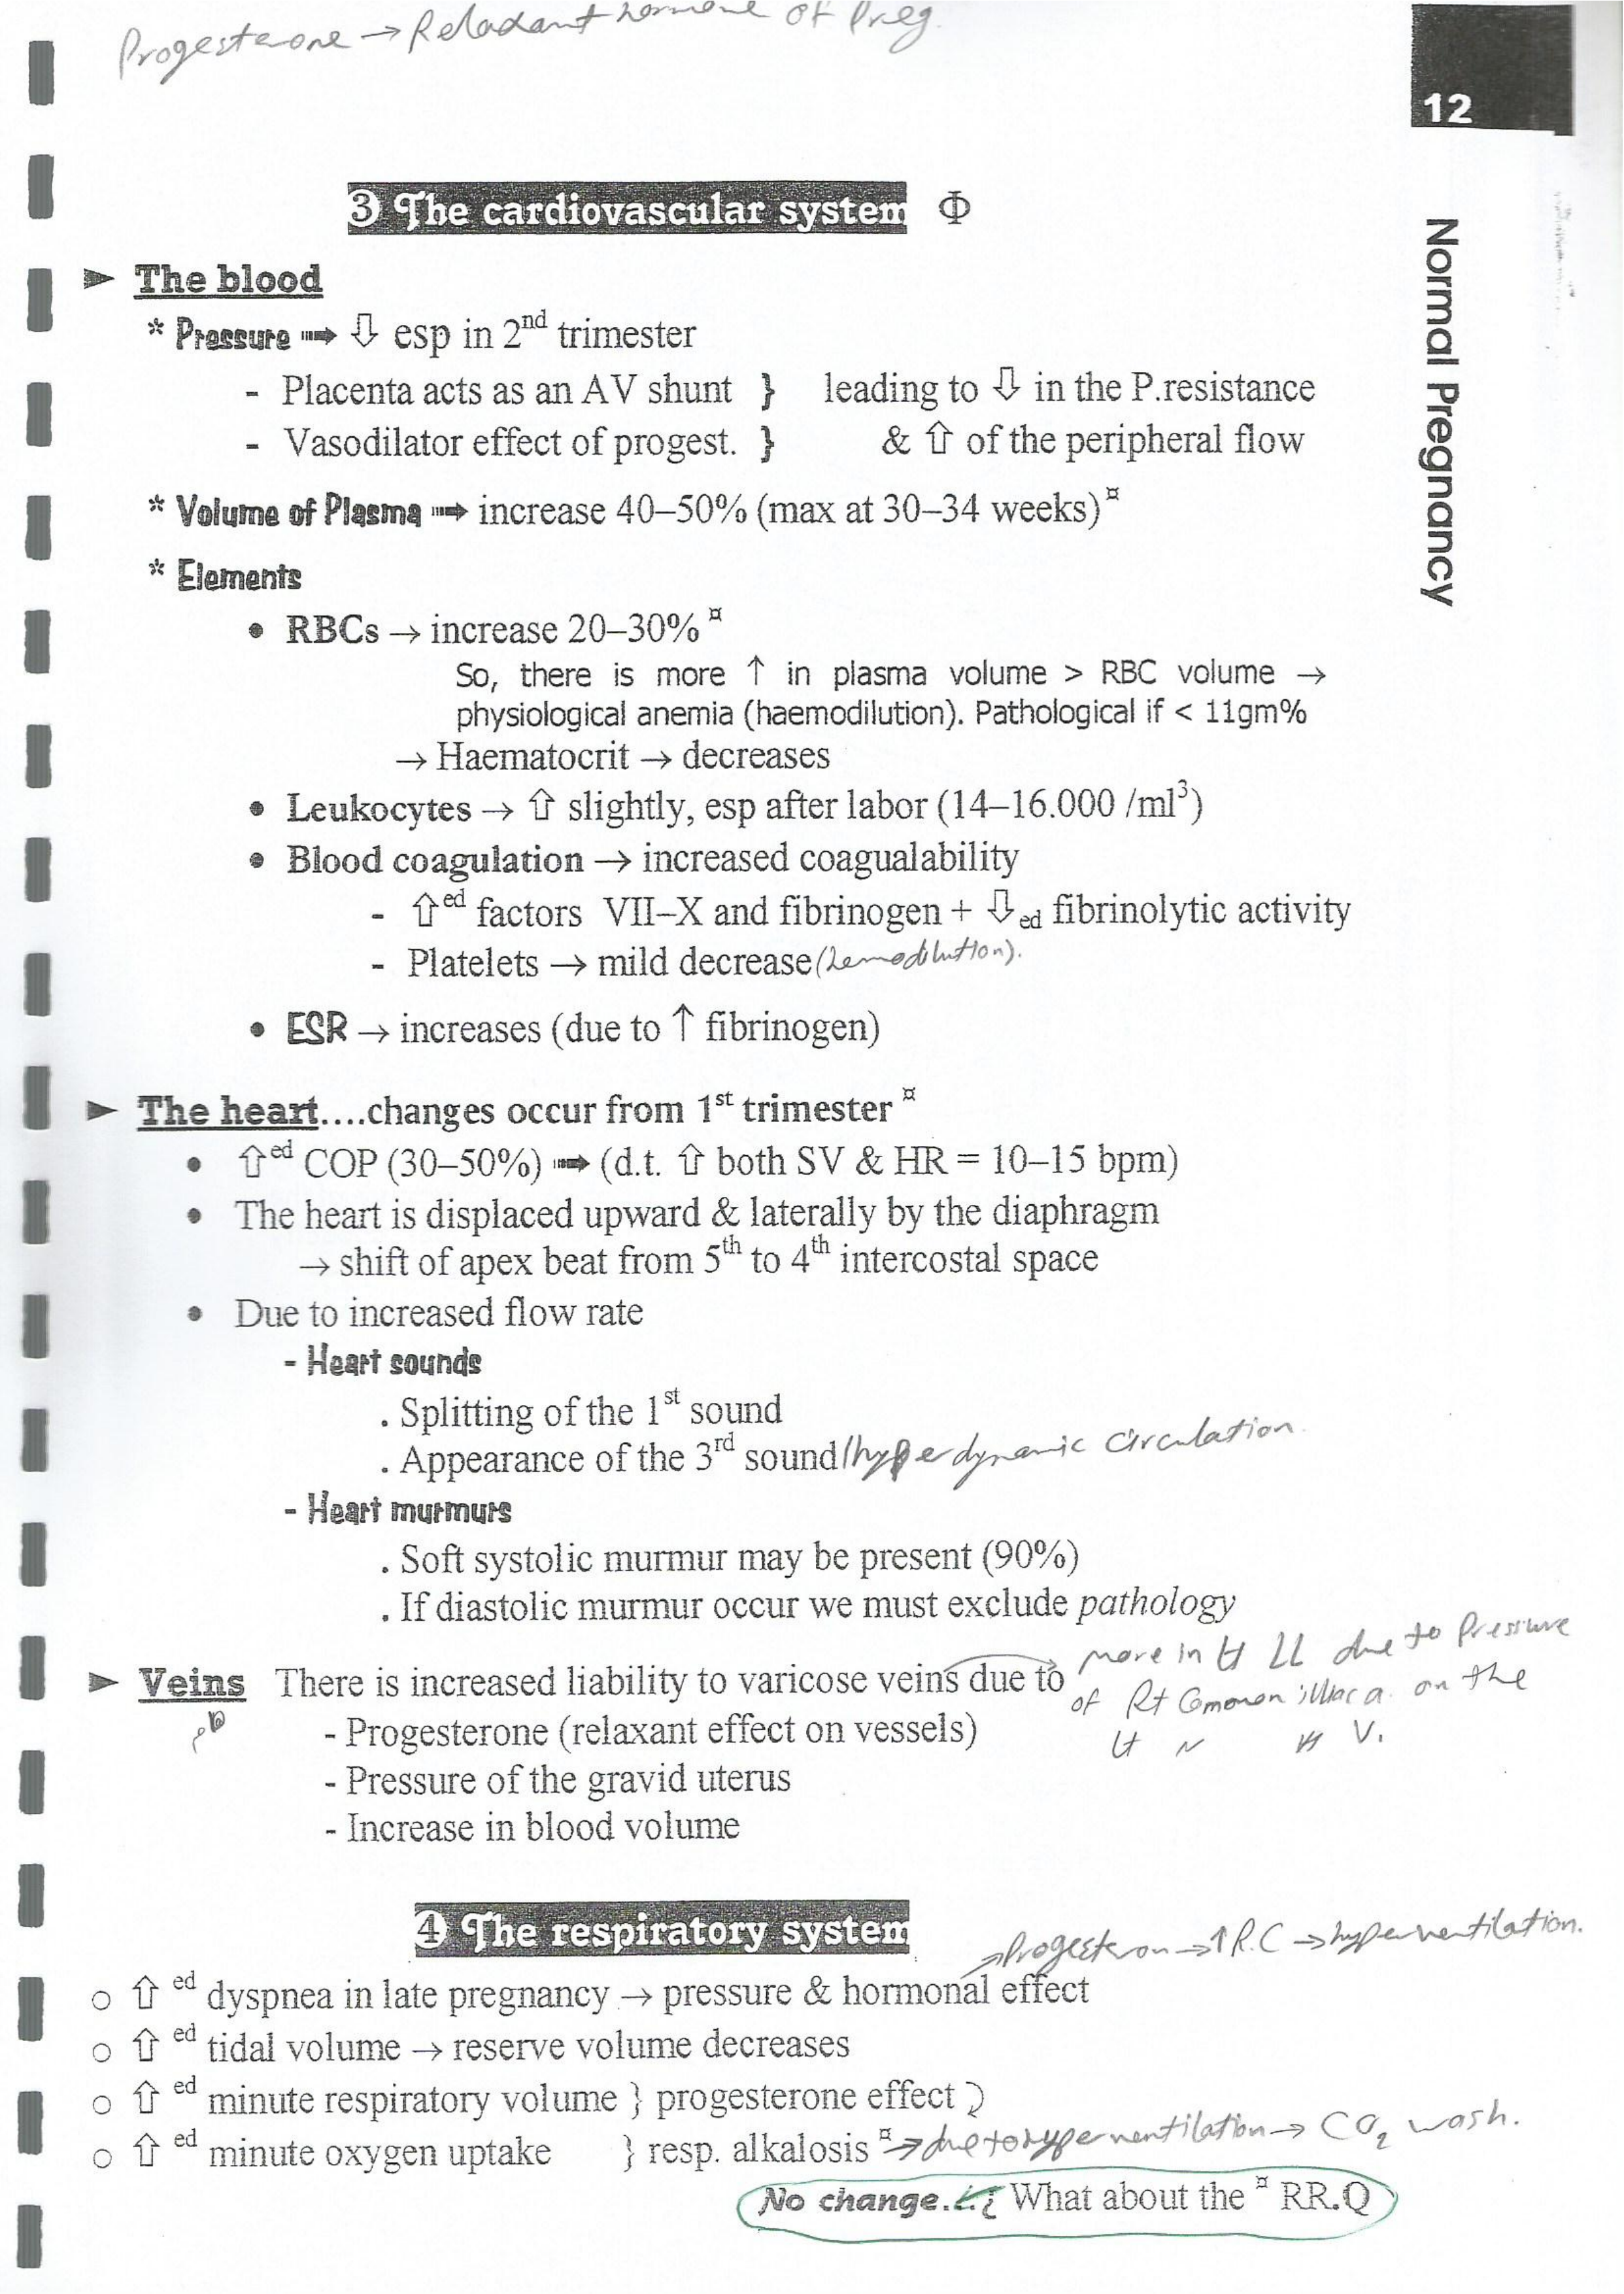 Progesterone → Relaxant hormone of Preg.
12
Normal Pregnancy
3 The cardiovascular system Φ
► The blood
* Pressure ➟ ⇩ esp in 2nd trimester
- Placenta acts as an AV shunt } leading to ⇩ in the P.resistance
- Vasodilator effect of progest. } & ⇧ of the peripheral flow
* Volume of Plasma ➟ increase 40–50% (max at 30–34 weeks)¤
* Elements
• RBCs → increase 20–30% ¤
So, there is more ↑ in plasma volume > RBC volume →
physiological anemia (haemodilution). Pathological if < 11gm%
→ Haematocrit → decreases
• Leukocytes → ⇧ slightly, esp after labor (14–16.000 /ml³)
• Blood coagulation → increased coagualability
- ⇧ed factors VII–X and fibrinogen + ⇩ed fibrinolytic activity
- Platelets → mild decrease (hemodilution).
• ESR → increases (due to ↑ fibrinogen)
► The heart....changes occur from 1st trimester ¤
• ⇧ed COP (30–50%) ➟ (d.t. ⇧ both SV & HR = 10–15 bpm)
• The heart is displaced upward & laterally by the diaphragm
→ shift of apex beat from 5th to 4th intercostal space
• Due to increased flow rate
- Heart sounds
. Splitting of the 1st sound
. Appearance of the 3rd sound / hyperdynamic circulation.
- Heart murmurs
. Soft systolic murmur may be present (90%)
. If diastolic murmur occur we must exclude pathology
► Veins There is increased liability to varicose veins due to
more in Lt LL due to Pressure
of Rt Common iliac a. on the
Lt 〃 〃 V.
- Progesterone (relaxant effect on vessels)
- Pressure of the gravid uterus
- Increase in blood volume
4 The respiratory system
→ Progesteron → ↑ R.C → hyperventilation.
○ ⇧ ed dyspnea in late pregnancy → pressure & hormonal effect
○ ⇧ ed tidal volume → reserve volume decreases
○ ⇧ ed minute respiratory volume } progesterone effect
○ ⇧ ed minute oxygen uptake } resp. alkalosis ¤ → due to hyperventilation → CO₂ wash.
No change...¿ What about the ¤ RR.Q